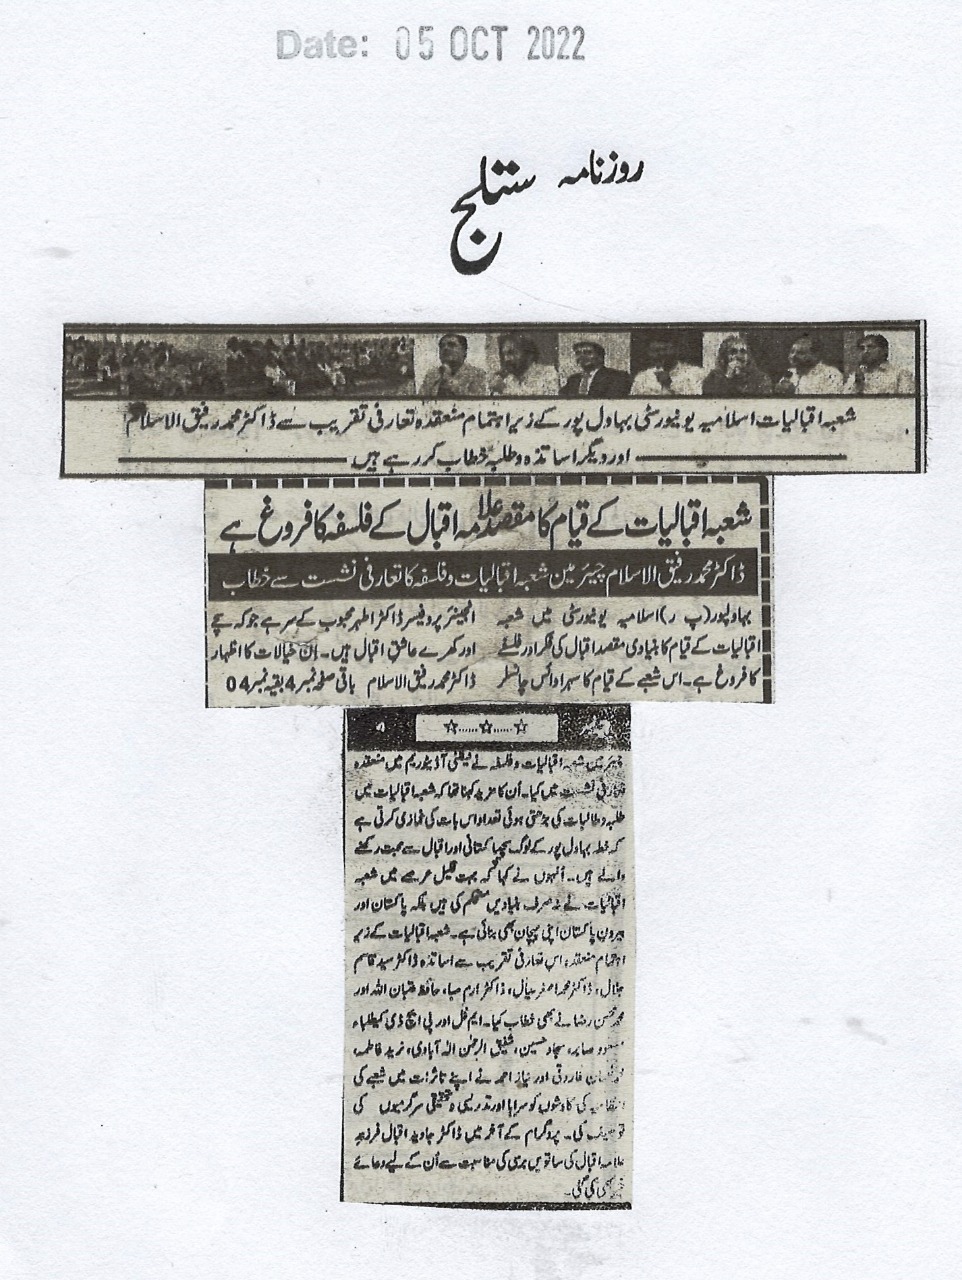 Date: 05 OCT 2022
روزنامہ ستلج
شعبہ اقبالیات اسلامیہ یونیورسٹی بہاول پور کے زیر اہتمام منعقدہ تعارفی تقریب سے ڈاکٹر محمد رفیق الاسلام
اور دیگر اساتذہ و طلبہ خطاب کر رہے ہیں
شعبہ اقبالیات کے قیام کا مقصد علامہ اقبال کے فلسفہ کا فروغ ہے
ڈاکٹر محمد رفیق الاسلام چیئرمین شعبہ اقبالیات و فلسفہ کا تعارفی نشست سے خطاب
بہاولپور(پ ر)اسلامیہ یونیورسٹی میں شعبہ
اقبالیات کے قیام کا بنیادی مقصد اقبال کی فکر اور فلسفے
کا فروغ ہے۔ اس شعبے کے قیام کا سہرا وائس چانسلر
انجینئر پروفیسر ڈاکٹر اطہر محبوب کے سر ہے جو کہ سچے
اور کھرے عاشق اقبال ہیں۔ ان خیالات کا اظہار
ڈاکٹر محمد رفیق الاسلام باقی صفحہ نمبر 4 بقیہ نمبر 04
☆......☆......☆
چیئرمین شعبہ اقبالیات و فلسفہ نے فیکلٹی آڈیٹوریم میں منعقدہ
تعارفی نشست میں کیا۔ اُن کا مزید کہنا تھا کہ شعبہ اقبالیات میں
طلبہ و طالبات کی بڑھتی ہوئی تعداد اس بات کی غمازی کرتی ہے
کہ خطہ بہاول پور کے لوگ سچے پاکستانی اور اقبال سے محبت رکھنے
والے ہیں۔ اُنہوں نے کہا کہ بہت قلیل عرصے میں شعبہ
اقبالیات نے نہ صرف بنیادیں مستحکم کی ہیں بلکہ پاکستان اور
بیرون پاکستان اپنی پہچان بھی بنائی ہے۔ شعبہ اقبالیات کے زیر
اہتمام منعقدہ اس تعارفی تقریب سے اساتذہ ڈاکٹر سید قاسم
جلال، ڈاکٹر محمد اصغر سیال، ڈاکٹر ارم صبا، حافظ عتبان اللہ اور
محمد محسن رضا نے بھی خطاب کیا۔ ایم فل اور پی ایچ ڈی کے طلباء
مسعود صابر، سجاد حسین، شفیق الرحمٰن الہ آبادی، فاطمہ،
فاروقی اور نیاز احمد نے اپنے تاثرات میں شعبے کی
انتظامیہ کی کاوشوں کو سراہا اور تدریسی و تحقیقی سرگرمیوں کی
توصیف کی۔ پروگرام کے آخر میں ڈاکٹر جاوید اقبال فرزندِ
علامہ اقبال کی ساتویں برسی کی مناسبت سے اُن کے لیے دعائے
بھی کی گئی۔